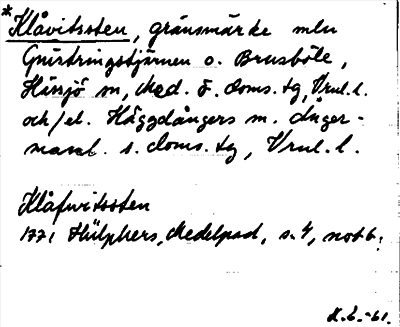 *Klåvitssten, gränsmärke mln
Gnistringstjärnen o. Brusböle,
Hässjö sn, Med. ö. doms. tg, Vnul. l.
och/el. Häggdångers sn. Ånger-
manl. s. doms. tg, Vnul. l.
Klåfwitssten
1771 Hülphers, Medelpad, s. 4, not b.
K.G.-61.